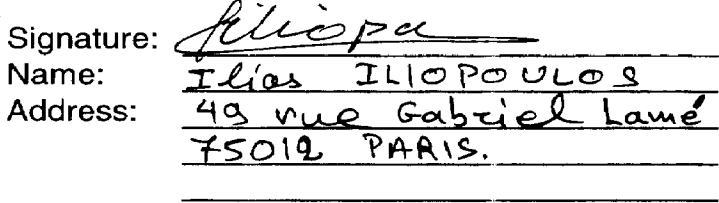 Signature: Iliopa
Name: Ilias ILIOPOULOS
Address: 49 rue Gabriel Lamé
75012 PARIS.